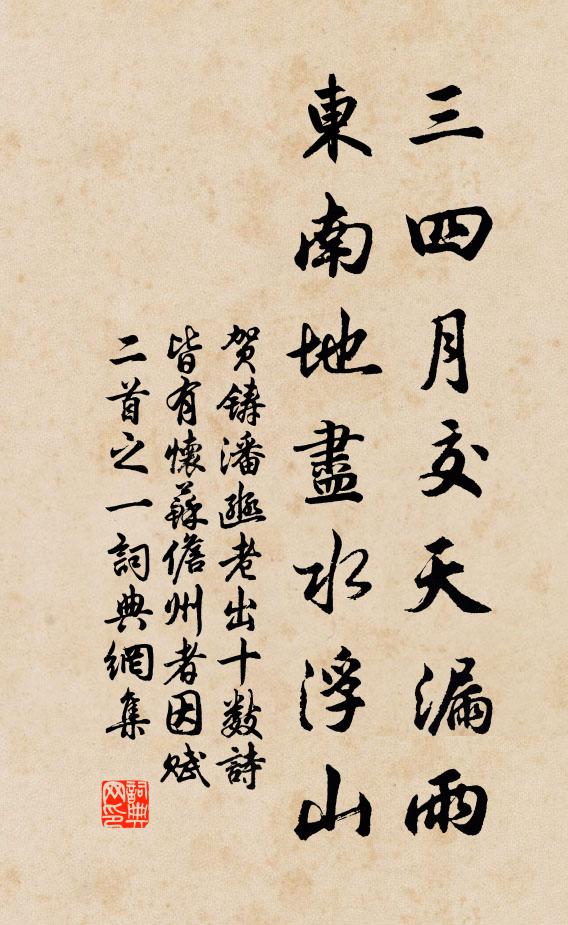 三四月交天漏雨
東南地盡水浮山
賀鑄潘邠老出十數詩
皆有懷蘇儋州者因賦
二首之一詞典網集
詞典網印